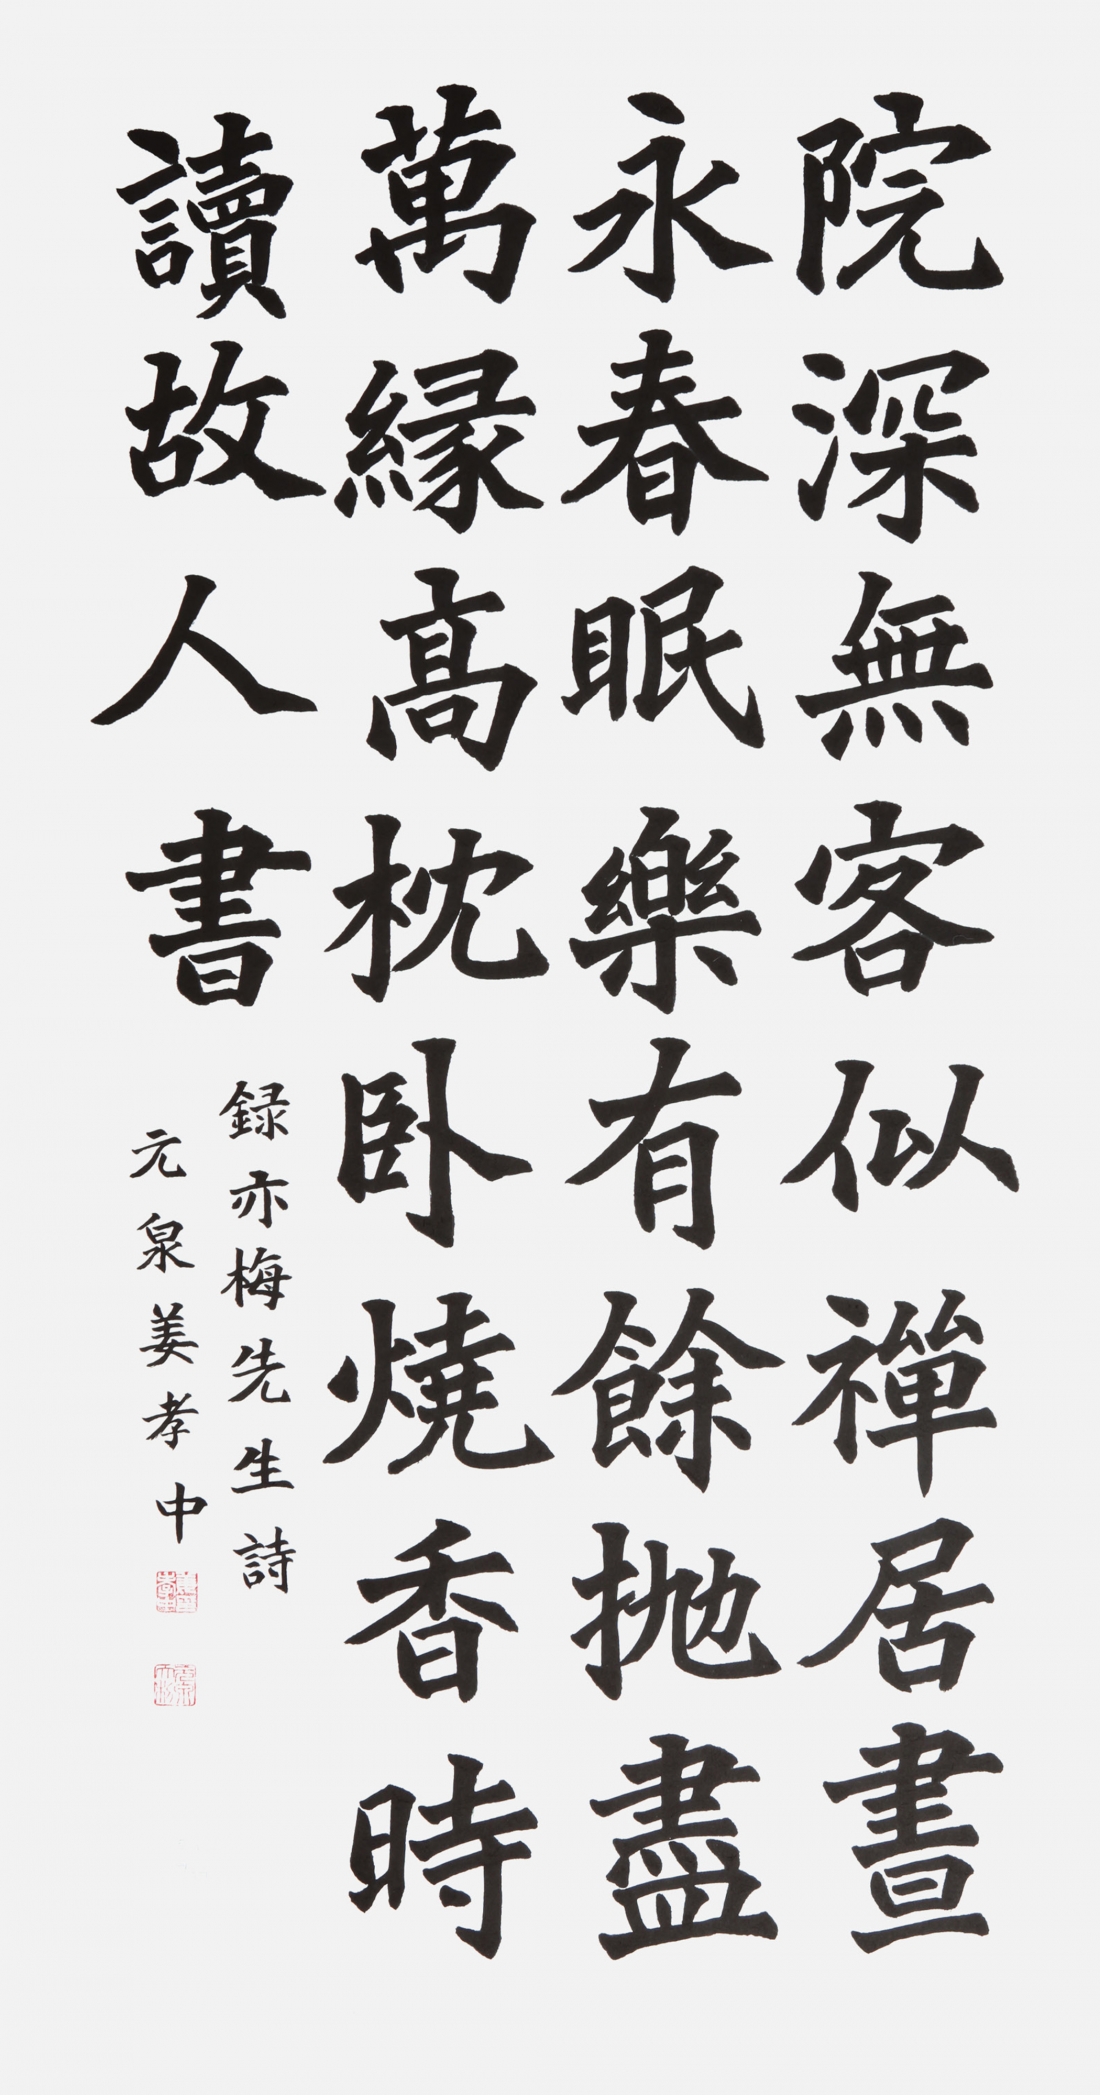 院深無客似禪居晝
永春眠樂有餘抛盡
萬縁髙枕卧燒香時
讀故人書
録亦梅先生詩
元泉姜孝中